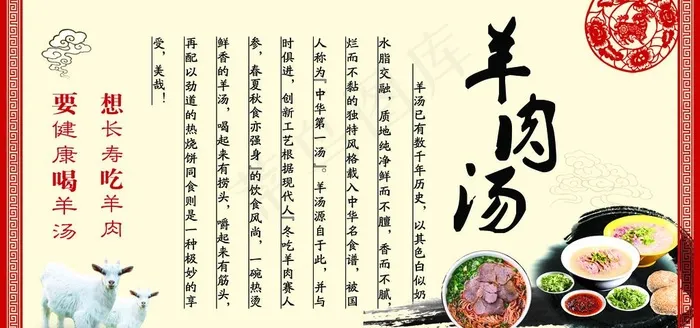 羊肉汤
羊汤已有数千年历史，以其色白似奶
水脂交融，质地纯净鲜而不膻，香而不腻，
烂而不黏的独特风格载入中华名食谱，被国
人称为『中华第一汤』。羊汤源自于此，并与
时俱进，创新工艺根据现代人『冬吃羊肉赛人
参，春夏秋食亦强身』的饮食风尚，一碗热烫
鲜香的羊汤，喝起来有捞头，嚼起来有筋头，
再配以劲道的热烧饼同食则是一种极妙的享
受，美哉！
想长寿吃羊肉
要健康喝羊汤